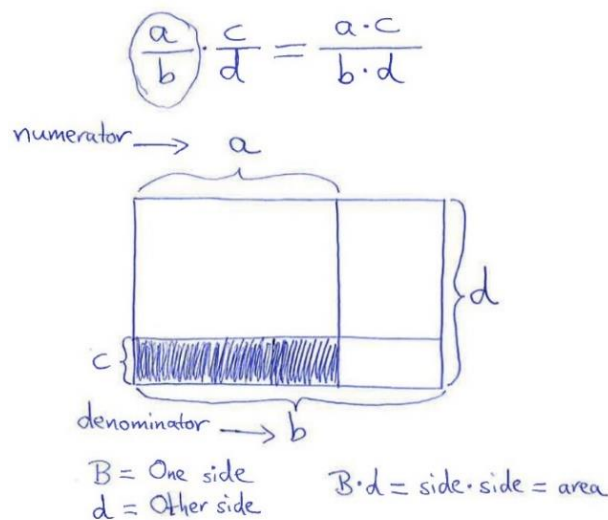 a/b · c/d = a·c/b·d
numerator → a
c
d
denominator → b
B = One side
d = Other side
B·d = side·side = area